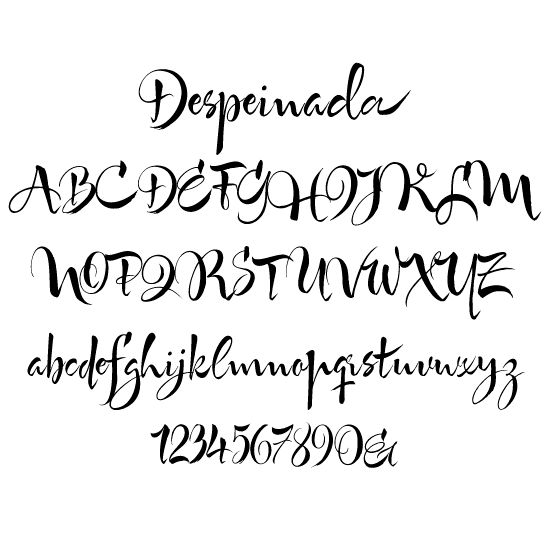 Despeinada
ABCDEFGHIJKLM
NOPQRSTUVWXYZ
abcdefghijklmnopqrstuvwxyz
1234567890&